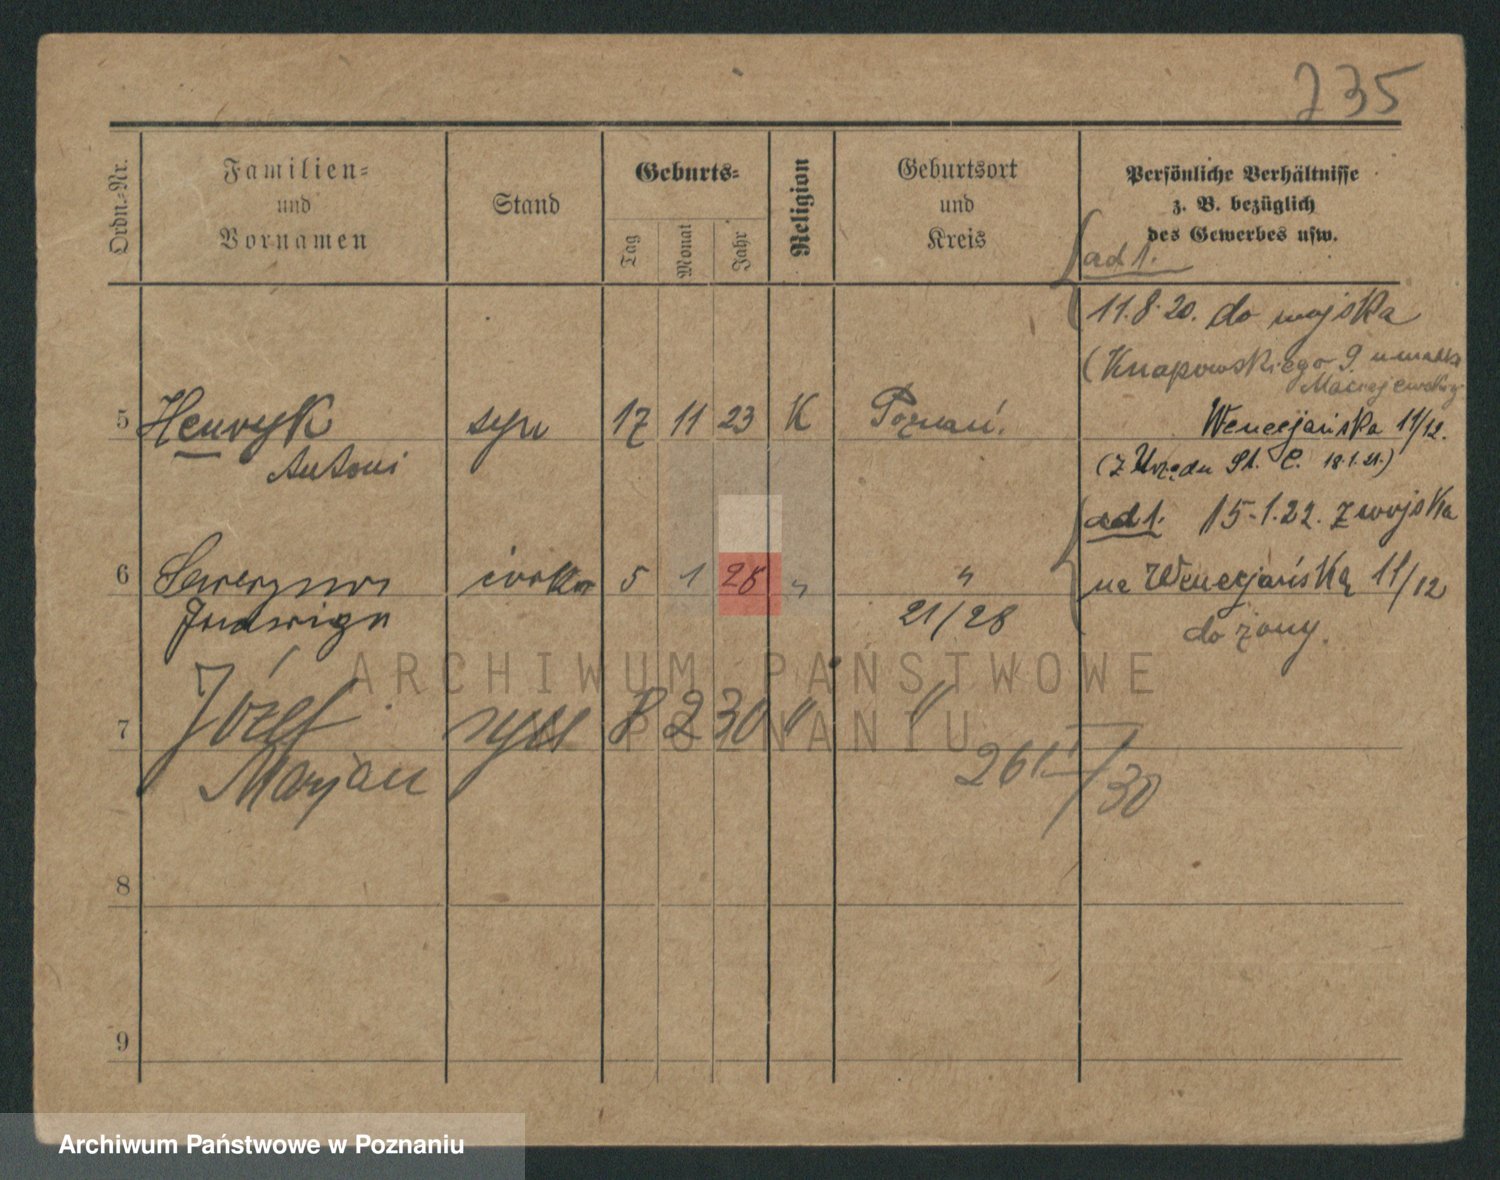 735
Ordn.-Nr.
Familien-
und
Vornamen
Stand
Geburts-
Tag
Monat
Jahr
Religion
Geburtsort
und
Kreis
Persönliche Verhältnisse
z. B. bezüglich
des Gewerbes usw.
ad 1.
11.8.20. do wojska
(Knapowskiego 9
Maciejewskiej
5 Henryk syn 17 11 23 K Poznań. Wenecjańska 11/12.
Antoni
(Z Urzędu St. C. 18.1.21.)
ad 1. 15.1.22. z wojska
6 Seweryna córka 5 1 28 " " na Wenecjańską 11/12
Jadwiga 21/28 do żony.
7 Józef syn 8 2 30 " "
Marjan 261/30
8
9
ARCHIWUM PAŃSTWOWE
W POZNANIU
Archiwum Państwowe w Poznaniu